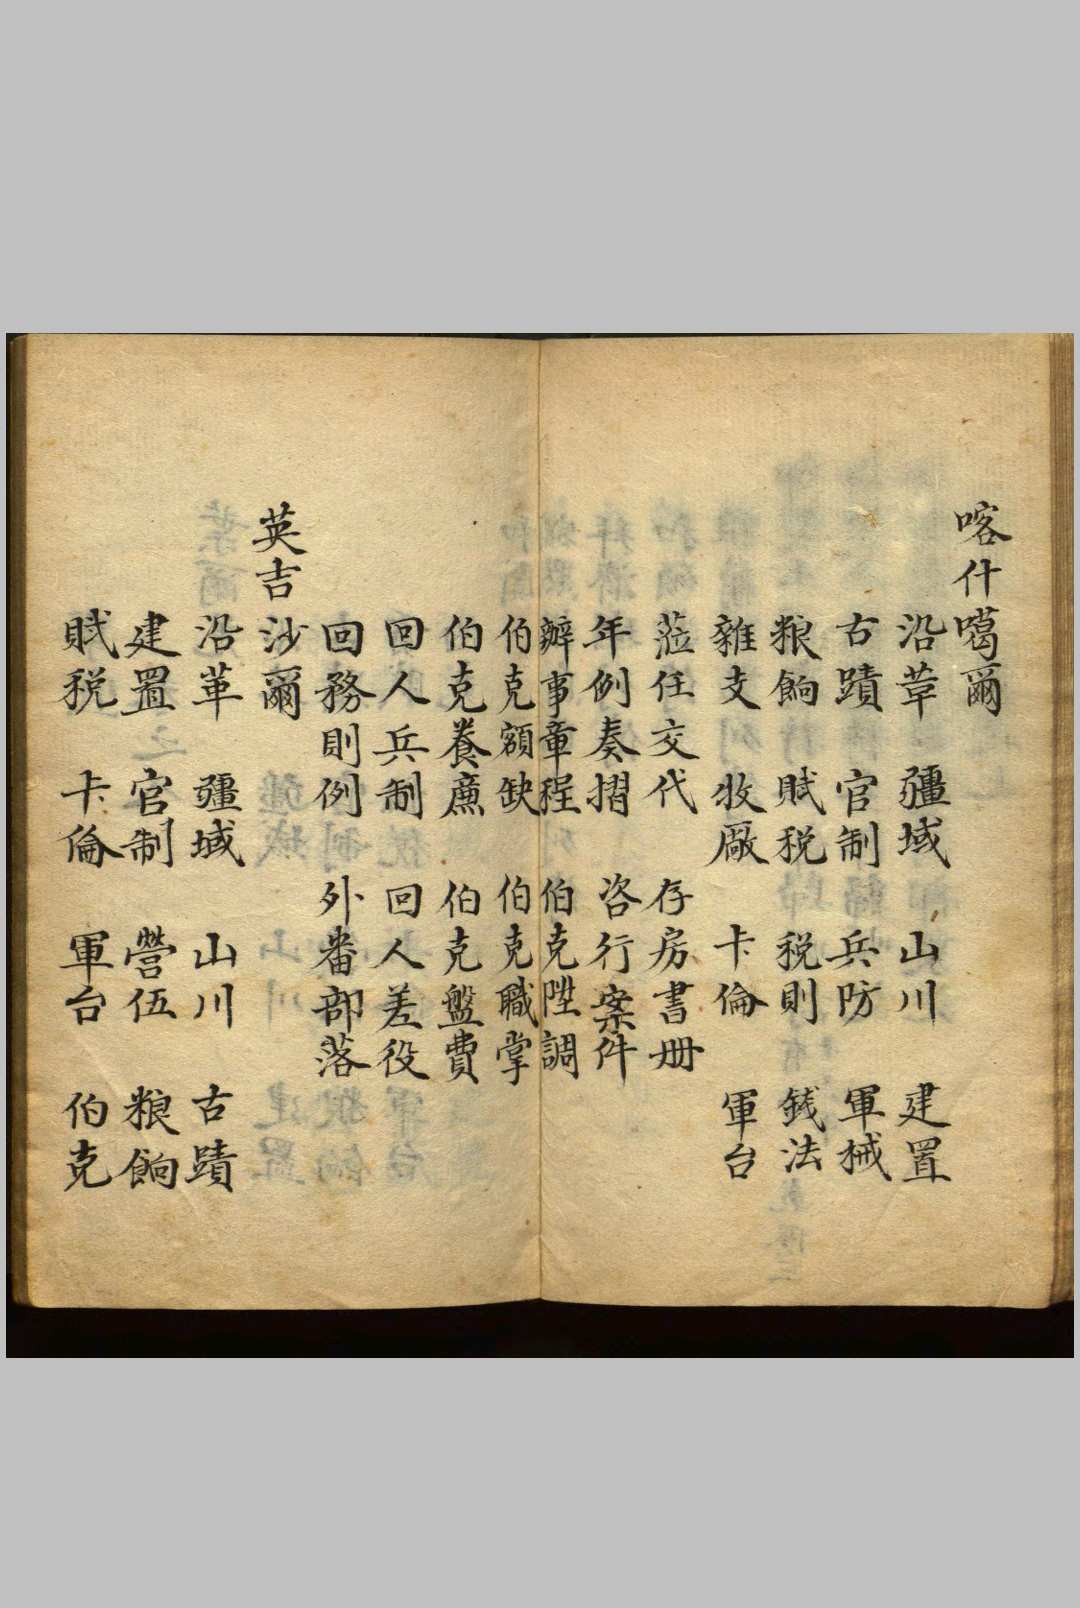 喀什噶爾
沿革 疆域 山川 建置
古蹟 官制 兵防 軍械
粮餉 賦税 税則 錢法
雜支 牧廠 卡倫 軍台
蒞任交代 存房書册
年例奏摺 咨行案件
辦事章程 伯克陞調
伯克額缺 伯克職掌
伯克養廉 伯克盤費
回人兵制 回人差役
回務則例 外番部落
英吉沙爾
沿革 疆域 山川 古蹟
建置 官制 營伍 粮餉
賦税 卡倫 軍台 伯克